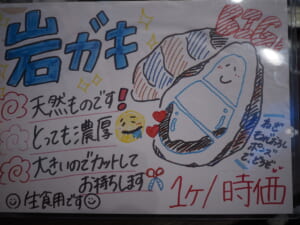 岩ガキ
天然ものです!
とっても濃厚
大きいのでカットして
お持ちします
生食用です
1ケ/時価
ポン酢
でどうぞ